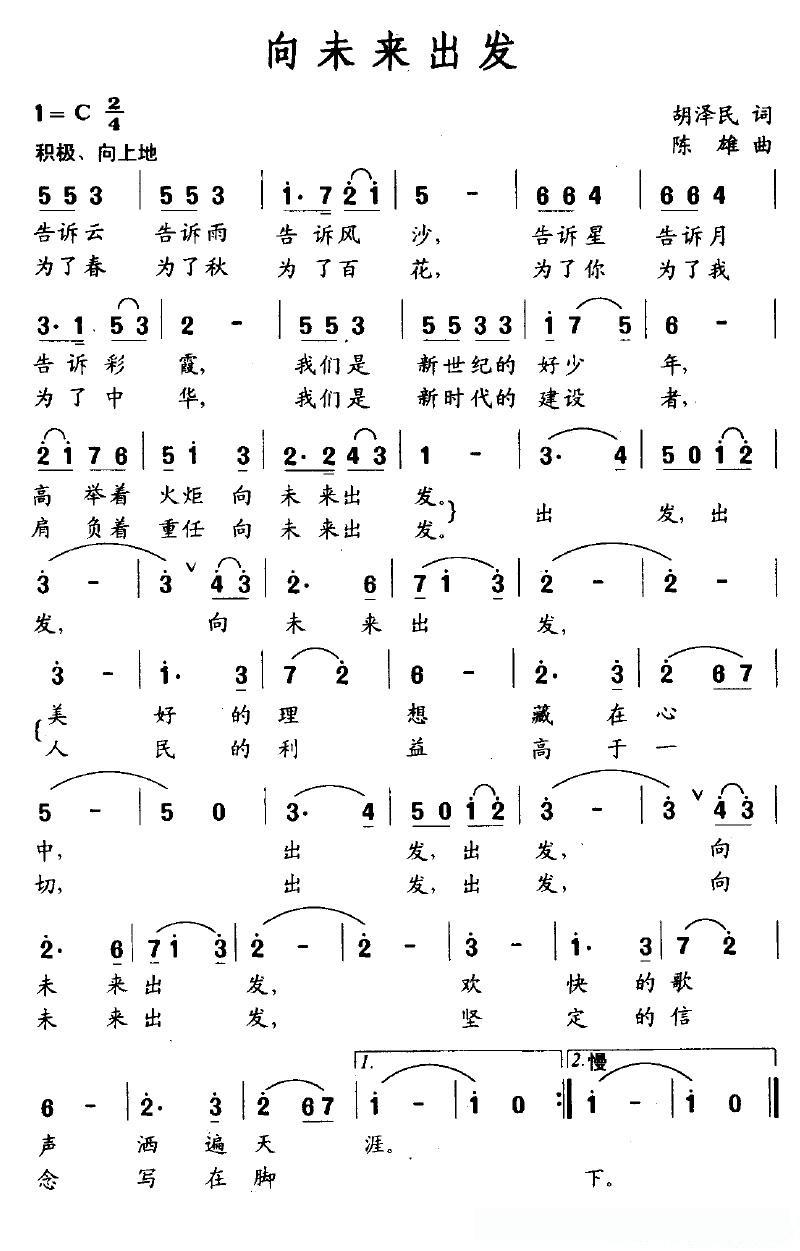 向未来出发
1=C 2/4
胡泽民 词
积极、向上地
陈 雄 曲
5 5 3 | 5 5 3 | i· 7 2 i | 5 - | 6 6 4 | 6 6 4 |
告诉云 告诉雨 告诉风 沙, 告诉星 告诉月
为了春 为了秋 为了百 花, 为了你 为了我
3· 1 5 3 | 2 - | 5 5 3 | 5 5 3 3 | i 7 5 | 6 - |
告诉彩 霞, 我们是 新世纪的 好少 年,
为了中 华, 我们是 新时代的 建设 者,
2 i 7 6 | 5 i 3 | 2· 2 4 3 | 1 - | 3· 4 | 5 0 i 2 |
高 举着 火炬 向 未来出 发。 出 发, 出
肩 负着 重任 向 未来出 发。
3 - | 3 ∨ 4 3 | 2· 6 | 7 i 3 | 2 - | 2 - |
发, 向 未 来 出 发,
3 - | i· 3 | 7 2 | 6 - | 2· 3 | 2 6 7 |
美 好 的 理 想 藏 在 心
人 民 的 利 益 高 于 一
5 - | 5 0 | 3· 4 | 5 0 i 2 | 3 - | 3 ∨ 4 3 |
中, 出 发, 出 发, 向
切, 出 发, 出 发, 向
2· 6 | 7 i 3 | 2 - | 2 - | 3 - | i· 3 | 7 2 |
未 来 出 发, 欢 快 的 歌
未 来 出 发, 坚 定 的 信
1. 2.慢
6 - | 2· 3 | 2 6 7 | i - | i 0 :| i - | i 0 ‖
声 洒 遍 天 涯。
念 写 在 脚 下。